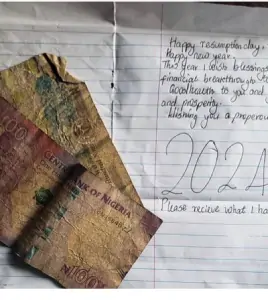 Happy resumption day,
Happy new year.
This year I wish blessings
financial breakthrough
Good health to you and
and prosperity.
Wishing you a prosperou
2024
Please recieve what I ha
BANK OF NIGERIA
₦100